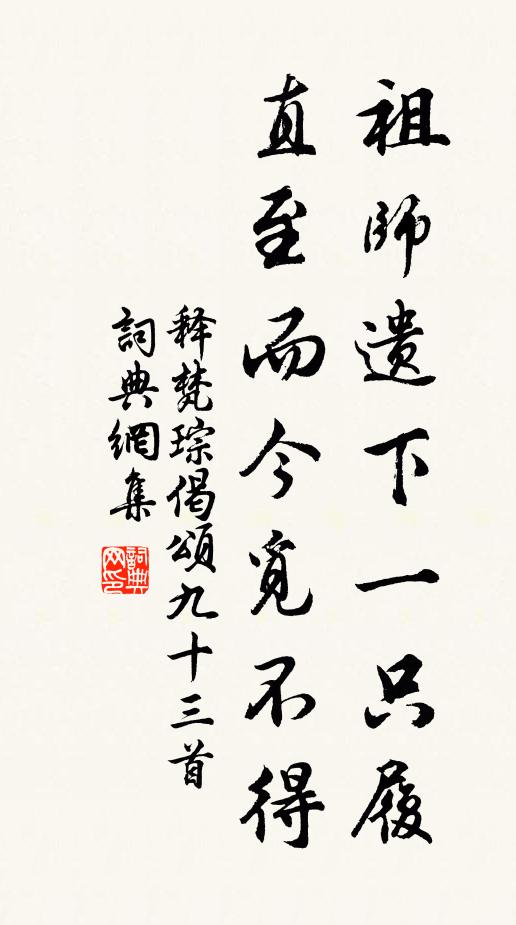 祖師遺下一只履
直至而今覓不得
释梵琮偈頌九十三首
詞典網集
詞典网印